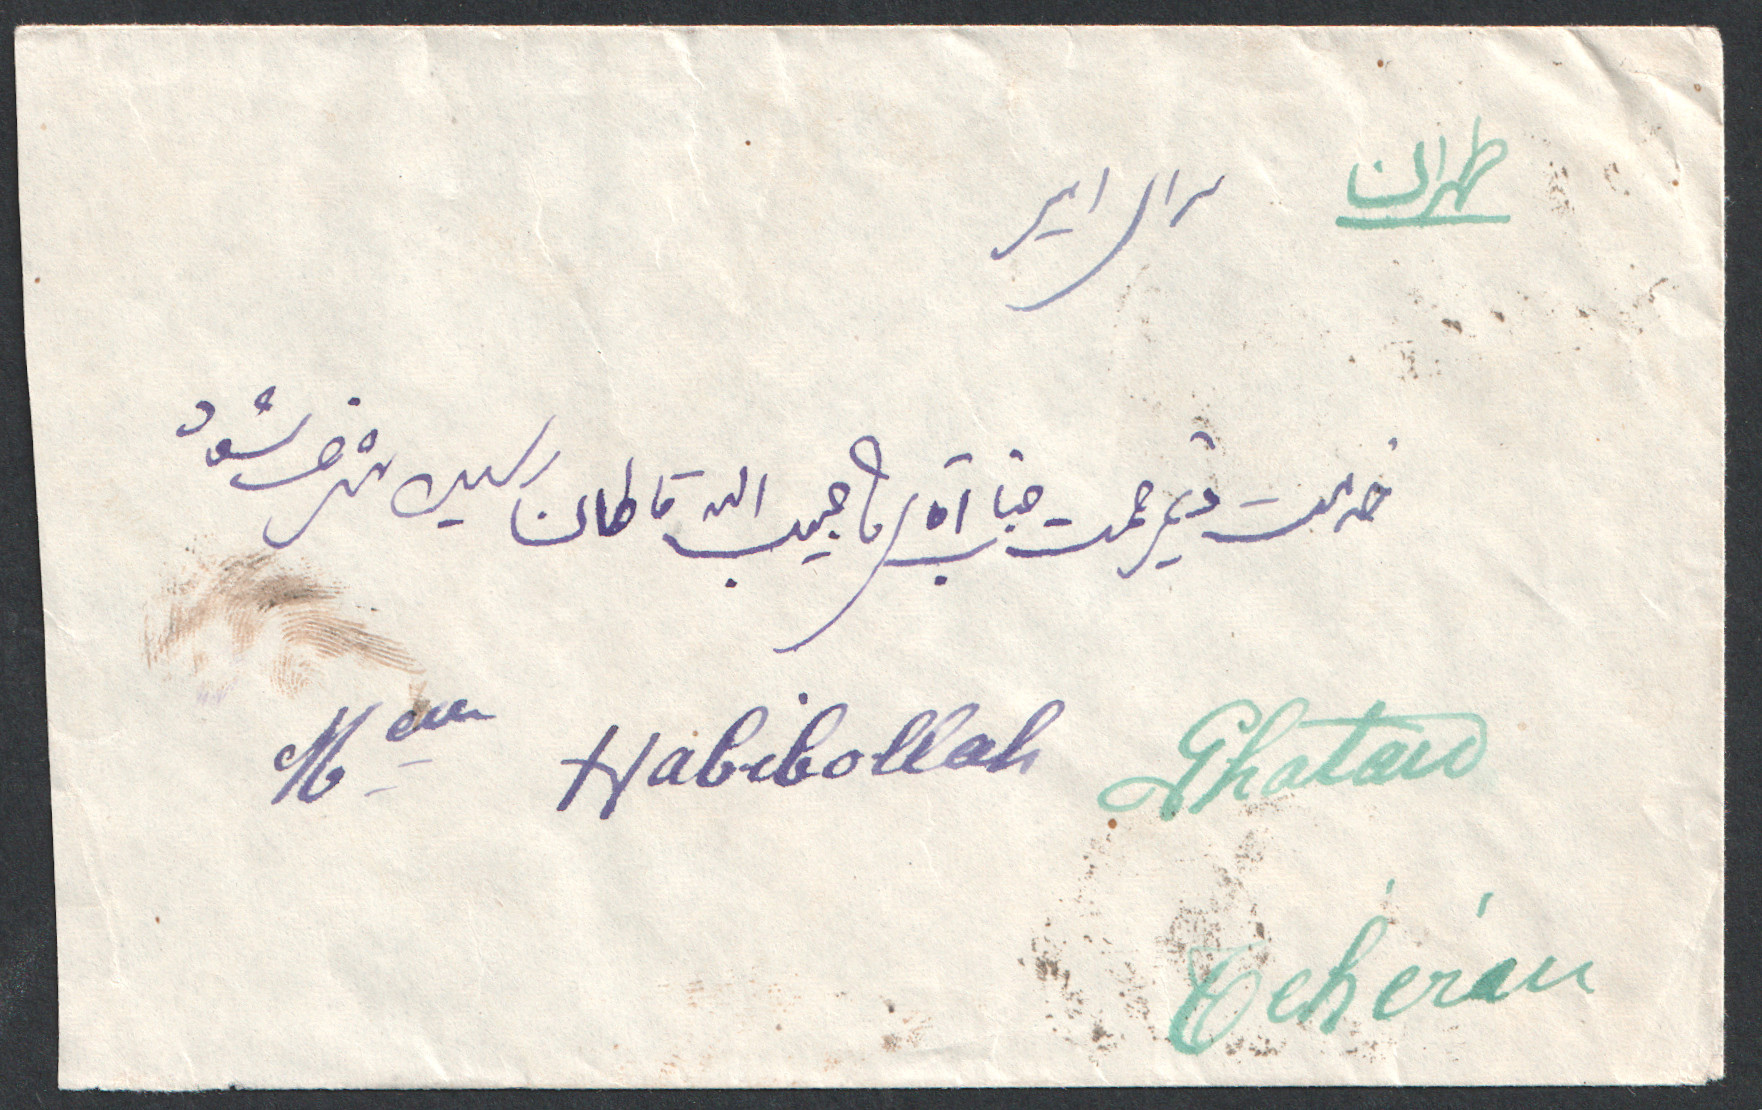 طهران سرای امیر
خدمت ذیرحمت جناب آقای آقا حبیب الله قاطان رسیده مشرف شود
Mr Habibollah Ghatan
Téhéran